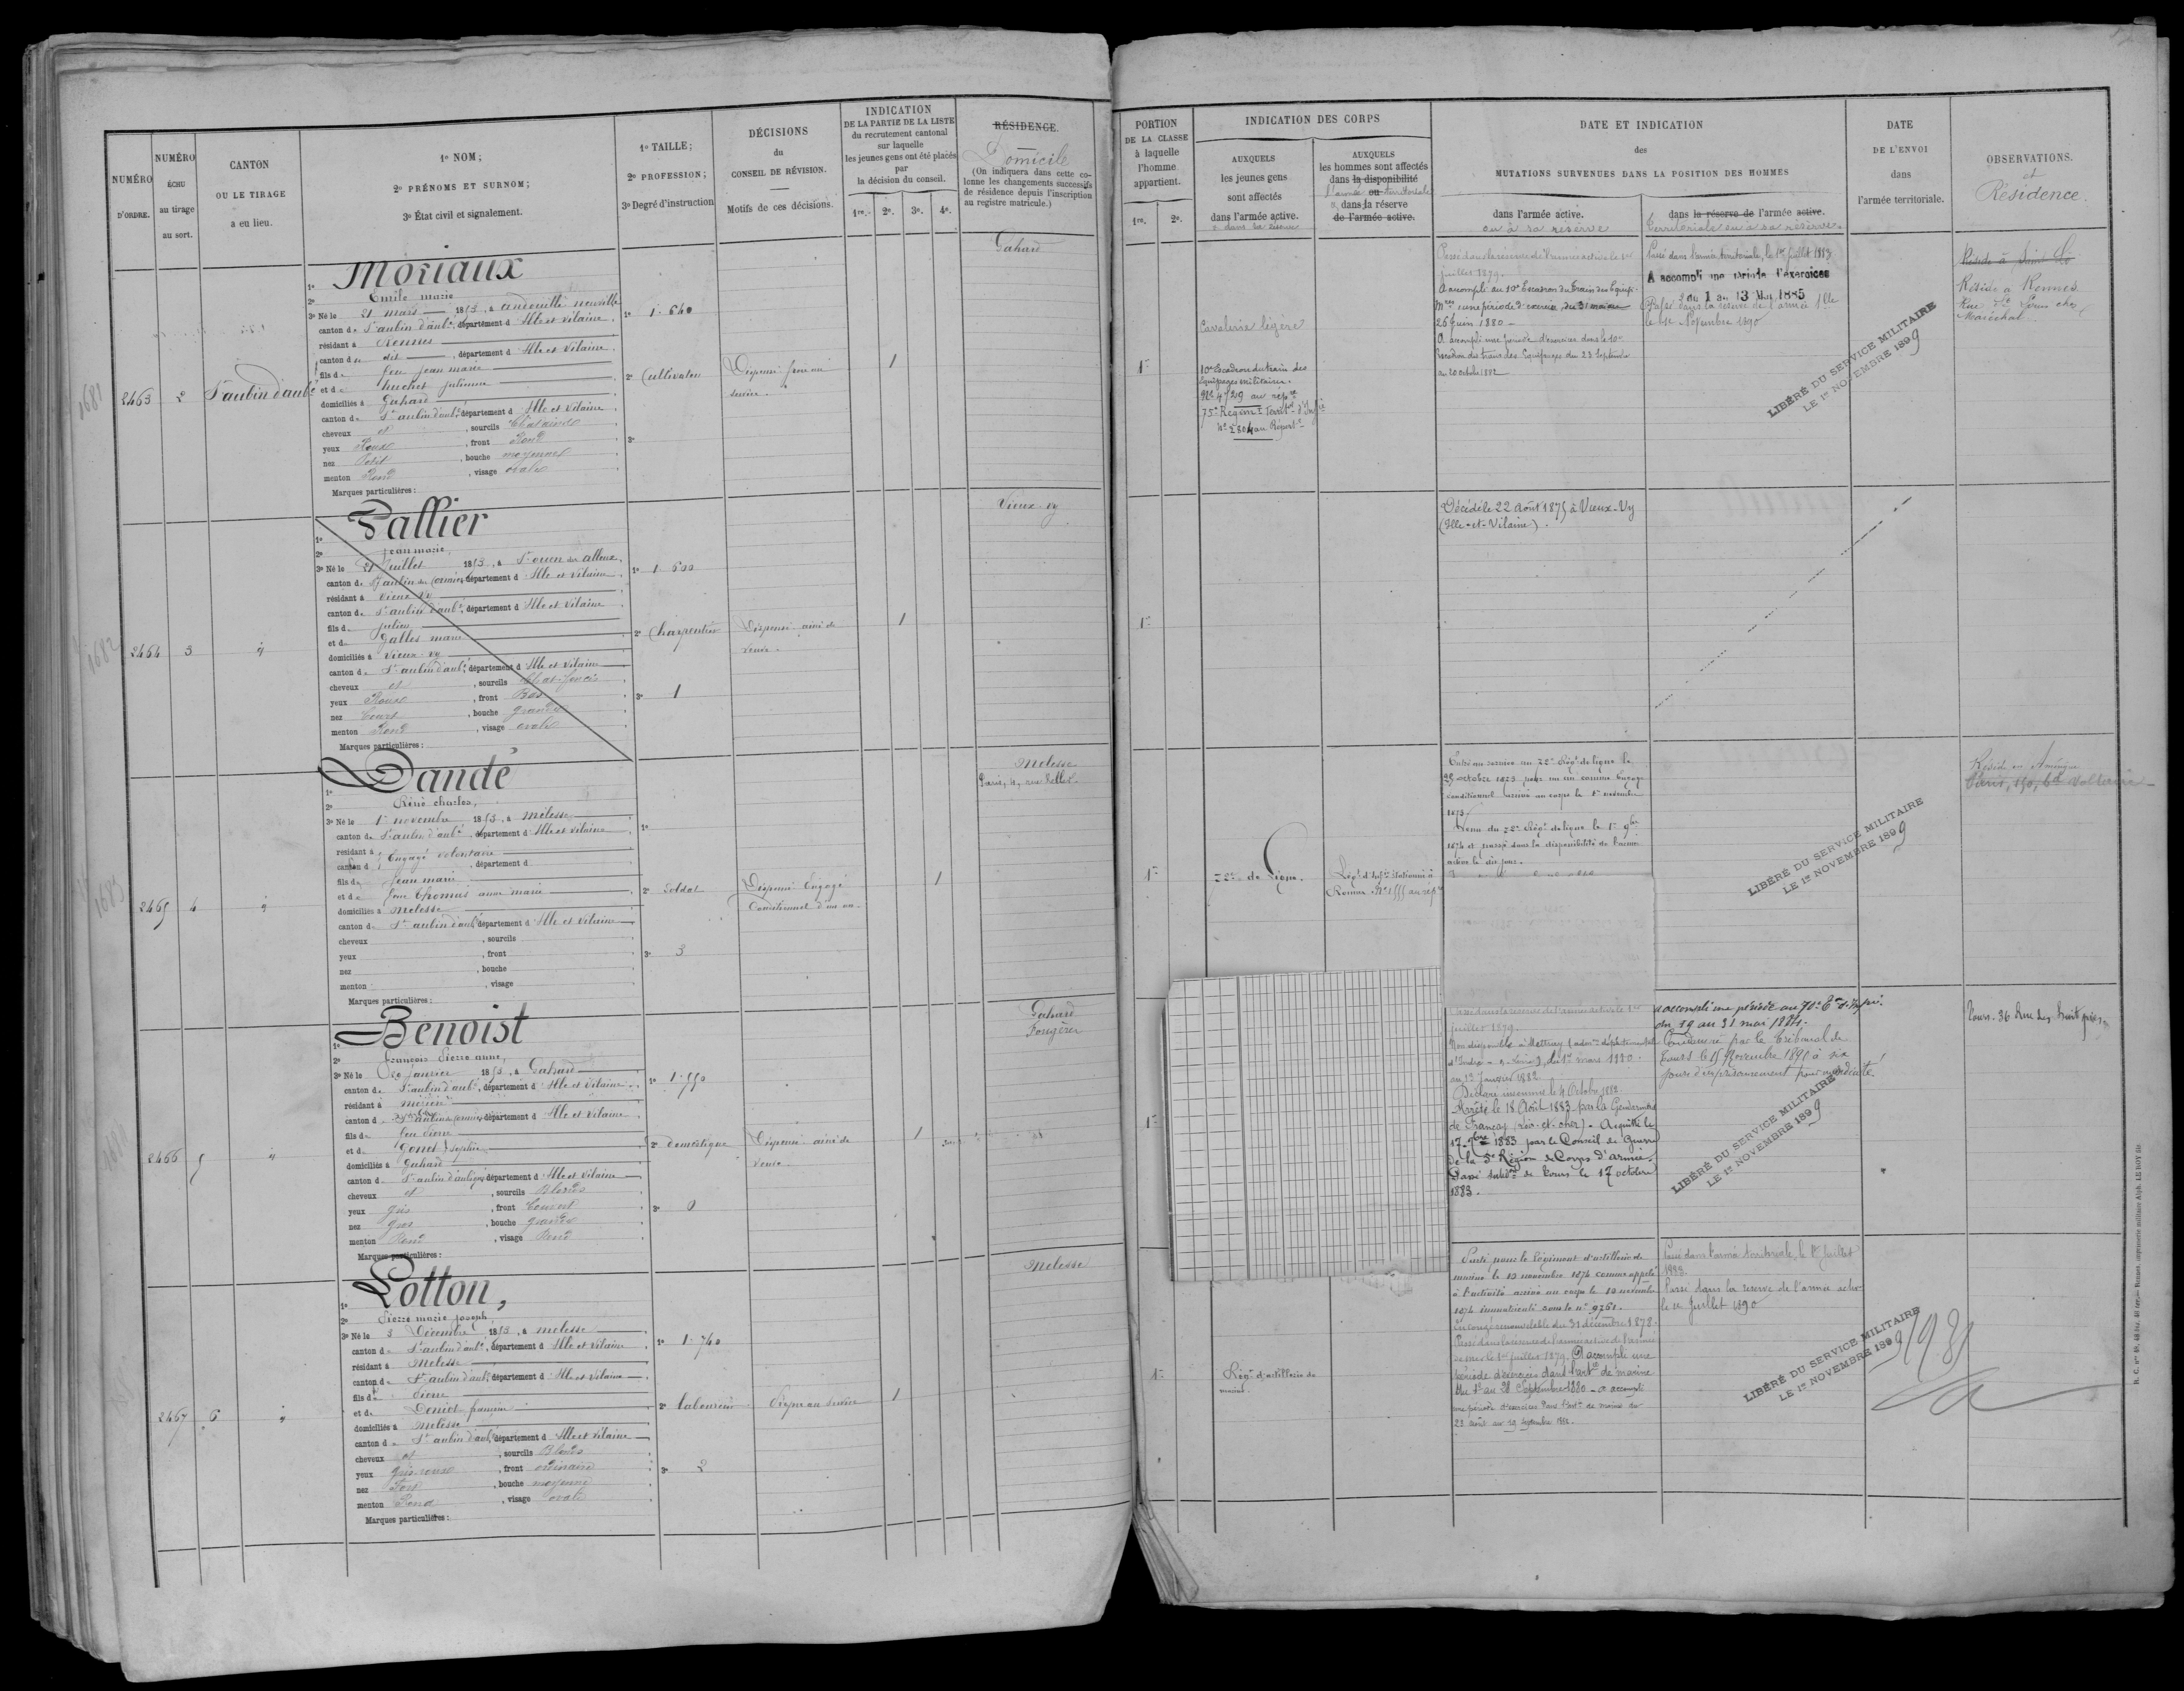 NUMÉRO
D'ORDRE.
NUMÉRO
ÉCHU
au tirage
au sort.
CANTON
OU LE TIRAGE
a eu lieu.
1º NOM;
2º PRÉNOMS ET SURNOM;
3º État civil et signalement.
1º TAILLE;
2º PROFESSION;
3º Degré d'instruction
DÉCISIONS
du
CONSEIL DE RÉVISION.
Motifs de ces décisions.
INDICATION
DE LA PARTIE DE LA LISTE
du recrutement cantonal
sur laquelle
les jeunes gens ont été placés
par
la décision du conseil.
1re. 2e. 3e. 4e.
RÉSIDENCE.
Domicile
(On indiquera dans cette co-
lonne les changements successifs
de résidence depuis l'inscription
au registre matricule.)
PORTION
DE LA CLASSE
à laquelle
l'homme
appartient.
1re. 2e.
INDICATION DES CORPS
AUXQUELS
les jeunes gens
sont affectés
dans l'armée active.
AUXQUELS
les hommes sont affectés
dans la disponibilité
l'armée ou territoriale
dans la réserve
de l'armée active.
DATE ET INDICATION
des
MUTATIONS SURVENUES DANS LA POSITION DES HOMMES
dans l'armée active.
ou à sa réserve
dans la réserve de l'armée active.
territoriale ou à sa réserve.
DATE
DE L'ENVOI
dans
l'armée territoriale.
OBSERVATIONS.
et
Résidence.
1681
2463
2
St aubin d'aubé
1º Moriaux
2º Emile marie
3º Né le 21 mars 1853, à andouillé neuville
canton de St aubin d'aubé, département d Ille et vilaine
résidant à Rennes
canton de dit, département d Ille et vilaine
fils de feu jean marie
et de huchet julienne
domiciliés à Gahard
canton de St aubin d'aubé, département d Ille et vilaine
cheveux et, sourcils Chatains
yeux Roux, front Rond
nez Petit, bouche moyenne
menton Rond, visage ovale
Marques particulières :
1º 1.640
2º Cultivateur
3º
Dispensé frère au
service.
1
Gahard
1re
Cavalerie légère
10e Escadron du train des
Equipages militaires.
Passé dans la réserve de l'armée active le 1er
juillet 1879.
A accompli au 10e Escadron du train des Equip.
26 juin 1880
A accompli une période d'exercices dans le 10e
Escadron du train des Equipages du 23 septembre
au 20 octobre 1882
Passé dans l'armée territoriale, le 1er juillet 1883
A accompli une période d'exercices
du 1 au 13 Mai 1885
Passé dans la réserve de l'armée tle
le 1er Novembre 1890
LIBÉRÉ DU SERVICE MILITAIRE
LE 1er NOVEMBRE 1899
Réside à Saint Lo
Réside à Rennes
Maréchal
1682
2464
3
1º Pallier
2º jean marie,
3º Né le 21 juillet 1853, à St ouen des alleux
canton de St aubin du cormier, département d Ille et vilaine
résidant à vieux vy
canton de St aubin d'aubé, département d Ille et vilaine
fils de julien
et de Galles marie
domiciliés à vieux-vy
canton de St aubin d'aubé, département d Ille et vilaine
cheveux et, sourcils Chat. foncés
yeux Roux, front Bas
nez Court, bouche grande
menton Rond, visage ovale
Marques particulières :
1º 1.600
2º Charpentier
3º 1
Dispensé ainé de
veuve.
1
Vieux-vy
1re
Décédé le 22 Août 1875 à Vieux-Vy
(Ille-et-Vilaine).
1683
2465
4
1º Dandé
2º Réné charles,
3º Né le 1er novembre 1853, à melesse
canton de St aubin d'aubé, département d Ille et vilaine
résidant à Engagé volontaire
canton d, département d
fils de jean marie
et de feue Thomas anne marie
domiciliés à Melesse
canton de St aubin d'aubé, département d Ille et vilaine
cheveux, sourcils
yeux, front
nez, bouche
menton, visage
Marques particulières :
1º
2º Soldat
3º 3
Dispensé Engagé
Conditionnel d'un an.
1
Melesse
1re
72e de Ligne.
Régt d'Infie Stationné à
Rennes
Entré au service au 72e Régt de ligne le
octobre 1873 pour un an comme Engagé
conditionnel arrivé au corps le 1er novembre
1873.
Venu du 72e Régt de ligne le 1er 9bre
1874 et passé dans la disponibilité de l'armée
active le dit jour.
LIBÉRÉ DU SERVICE MILITAIRE
LE 1er NOVEMBRE 1899
Réside en Amérique
Paris, 150, bd voltaire
2466
5
1º Benoist
2º françois Pierre anne,
3º Né le 20 janvier 1853, à Gahard
canton de St aubin d'aubé, département d Ille et vilaine
résidant à mézière
canton de St aubin du cormier, département d Ille et vilaine
fils de feu Pierre
et de Gonet Sophie
domiciliés à Gahard
canton de St aubin d'aubigné, département d Ille et vilaine
cheveux et, sourcils Blonds
yeux gris, front Couvert
nez gros, bouche grande
menton Rond, visage Rond
Marques particulières :
1º 1.550
2º domestique
3º 0
Dispensé ainé de
veuve.
1
Gahard
Fougères
1re
Passé dans la réserve de l'armée active le 1er
juillet 1879.
au 13 Janvier 1882.
Déclaré insoumis le 4 Octobre 1882
Arrêté le 18 Août 1883 par la Gendarmerie
de Françay (Loir-et-cher). Acquitté le
17 7bre 1883 par le Conseil de Guerre
de la 5e Région de Corps d'armée.
Passé subdon de Tours le 17 octobre
1883.
a accompli une période au 70e Rt d'Infie
du 19 au 31 mai 1884.
Condamné par le tribunal de
Tours le 15 Novembre 1895 à six
jours d'emprisonnement pour mendicité
LIBÉRÉ DU SERVICE MILITAIRE
LE 1er NOVEMBRE 1899
Tours. 36 Rue des
2467
6
1º Lotton,
2º Pierre marie joseph,
3º Né le 3 Décembre 1853, à melesse
canton de St aubin d'aubé, département d Ille et vilaine
résidant à Melesse
canton de St aubin d'aubé, département d Ille et vilaine
fils de Pierre
et de Doniot françoise
domiciliés à Melesse
canton de St aubin d'aubé, département d Ille et vilaine
cheveux et, sourcils Blonds
yeux gris roux, front ordinaire
nez Fort, bouche moyenne
menton Rond, visage ovale
Marques particulières :
1º 1.740
2º laboureur
3º 2
Propre au service
1
Melesse
1re
Régt d'artillerie de
marine.
Parti pour le Régiment d'artillerie de
marine le 10 novembre 1874 comme appelé
à l'activité arrivé au corps le 10 novembre
1874 immatriculé sous le nº 9761.
En congé renouvelable du 31 décembre 1878.
Passé dans la réserve de l'armée active de l'armée
de mer le 1er juillet 1879. A accompli une
période d'exercices dans l'artie de marine
du 1er au 28 Septembre 1880 - a accompli
une période d'exercices dans l'artie de marine du
23 août au 19 septembre 1882.
Passé dans l'armée territoriale, le 1er juillet
1883
Passé dans la réserve de l'armée active
le 1er Juillet 1890
LIBÉRÉ DU SERVICE MILITAIRE
LE 1er NOVEMBRE 1899